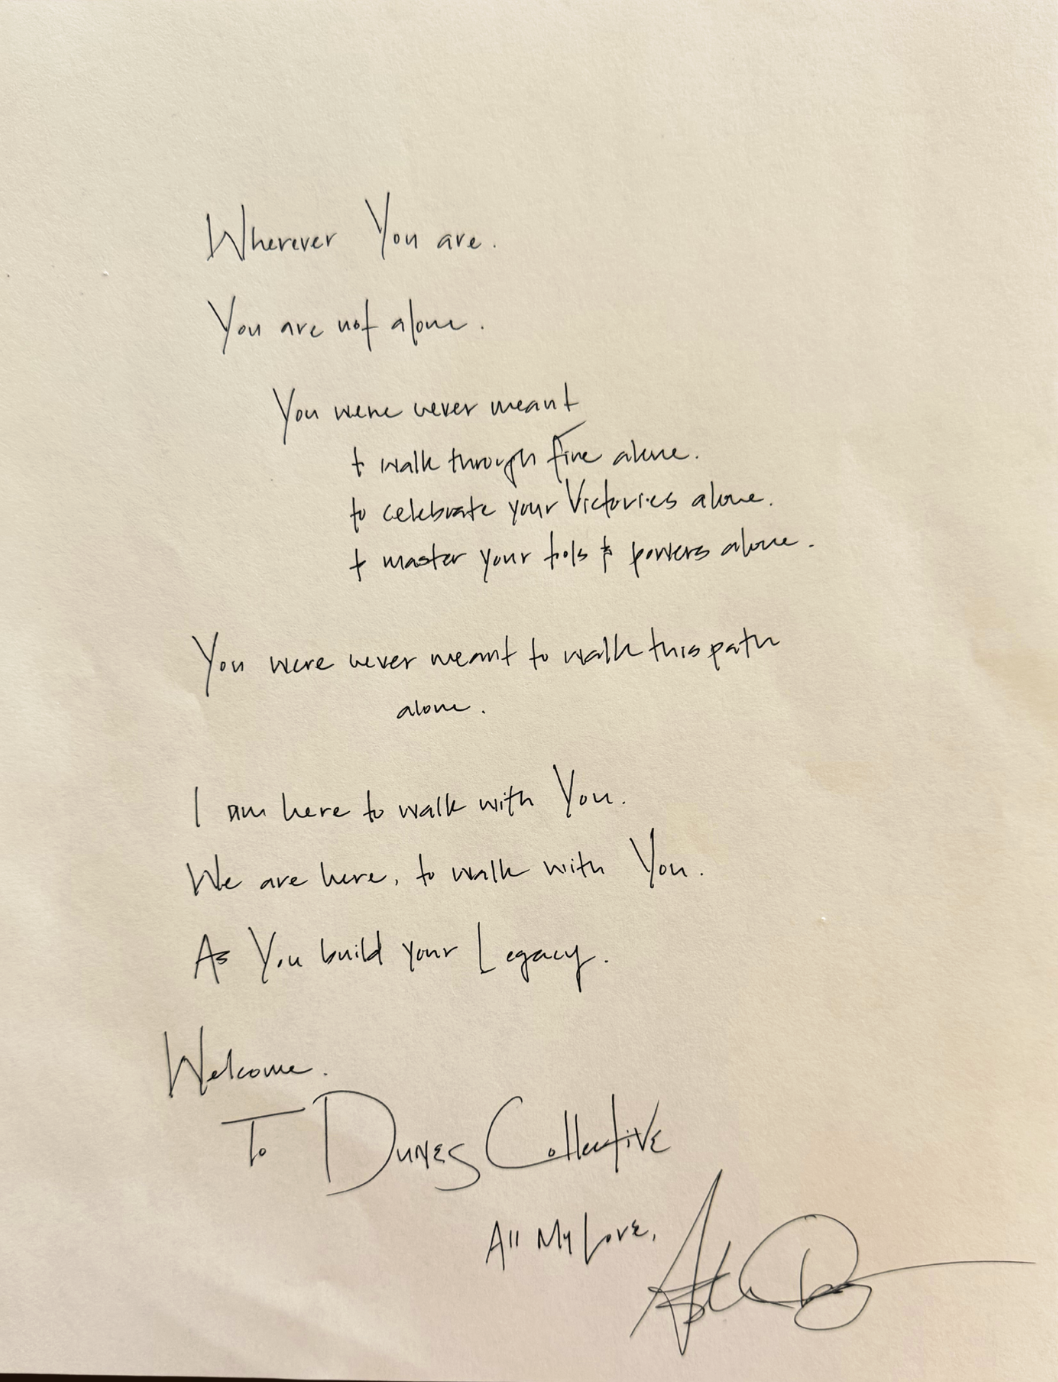 Wherever You are.
You are not alone.
You were never meant
to walk through fire alone.
to celebrate your Victories alone.
to master your tools & powers alone.
You were never meant to walk this path
alone.
I am here to walk with You.
We are here, to walk with You.
As You build your Legacy.
Welcome.
To Dunes Collective
All My Love,